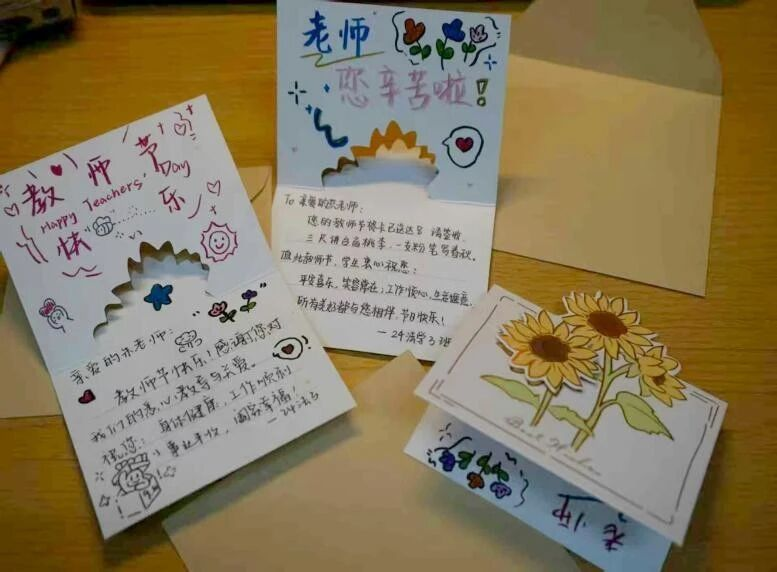 教师节
Happy Teachers' Day
快乐
亲爱的朱老师:
教师节快乐!感谢您对
我们的悉心教导与关爱。
祝您:身体健康,工作顺利
事业丰收,阖家幸福!
—24法3
老师
您辛苦啦!
To 亲爱的老师:
您的教师节贺卡已送达 请签收
三尺讲台育桃李,一支粉笔写春秋。
值此教师节,学生衷心祝愿:
平安喜乐,笑容常在;工作顺心,生活惬意
所有美好都与您相伴,节日快乐!
—24法学3班
Best Wishes
老师